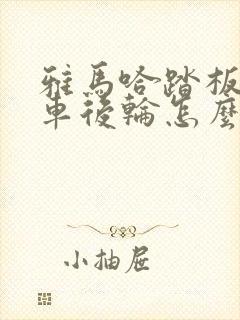 雅馬哈踏板
車後輪怎麼
小抽屉